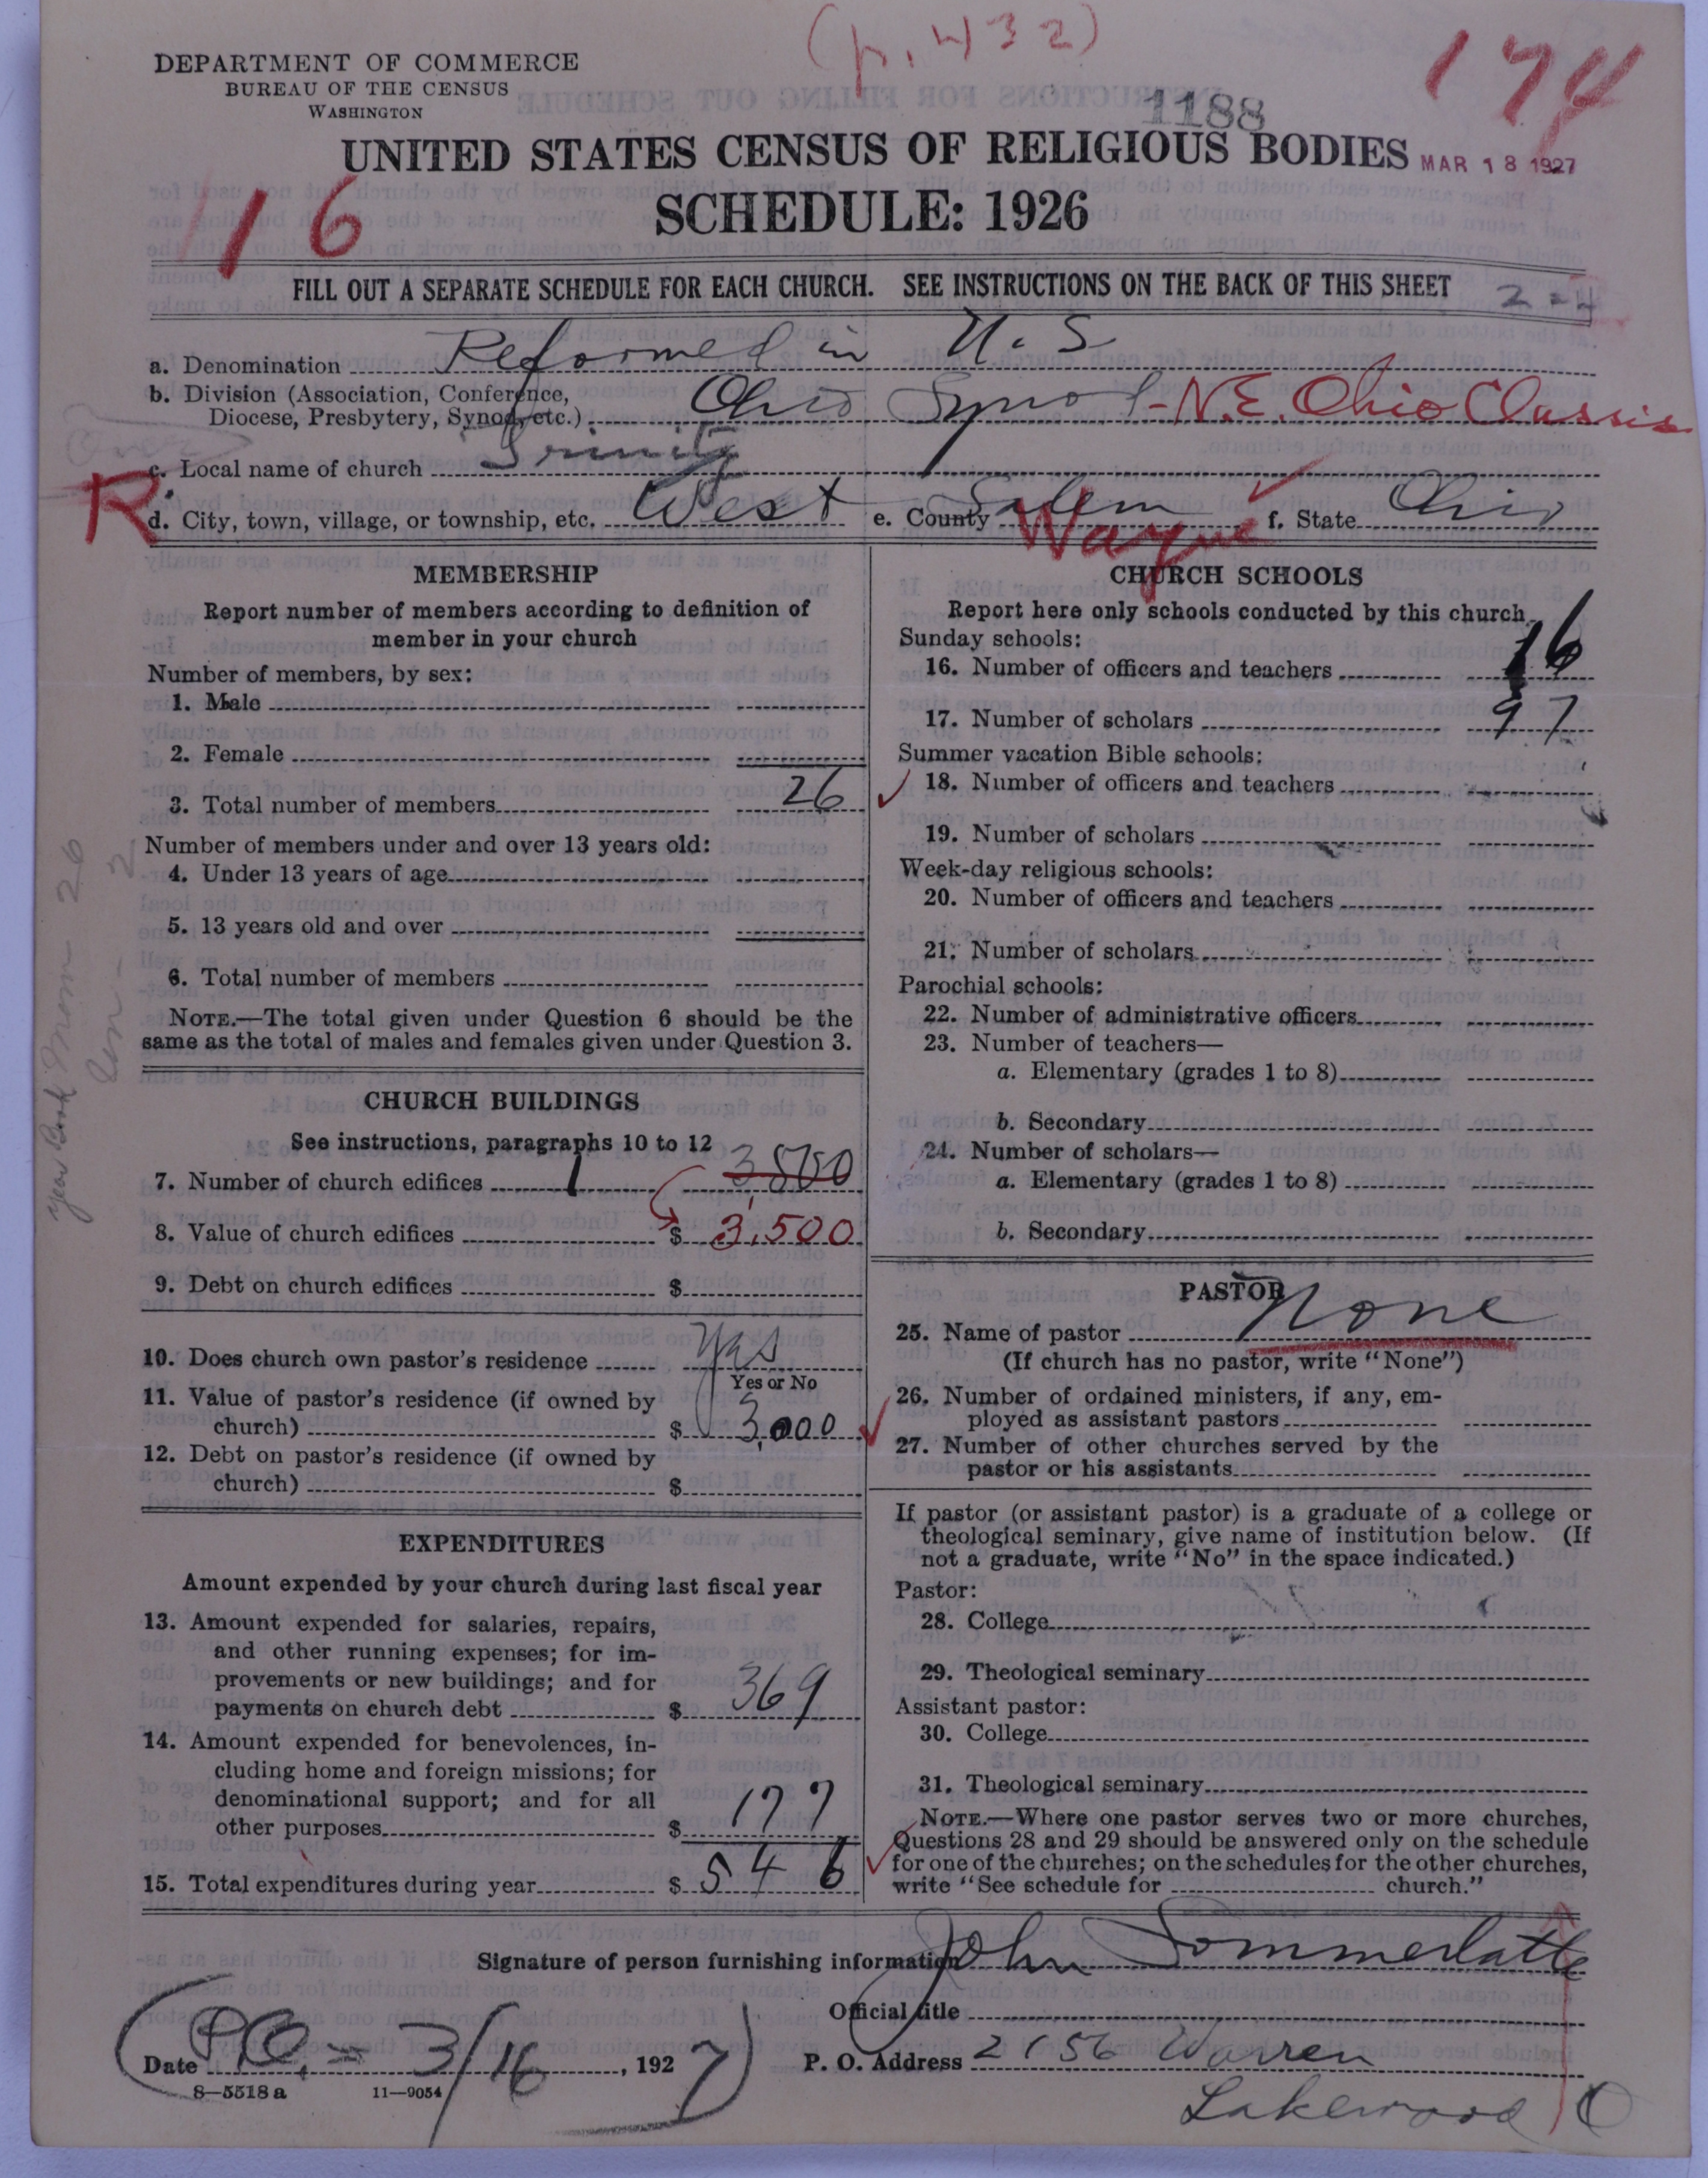 (p. 432)
174
DEPARTMENT OF COMMERCE
BUREAU OF THE CENSUS
WASHINGTON
1188
UNITED STATES CENSUS OF RELIGIOUS BODIES
MAR 18 1927
16
SCHEDULE: 1926
FILL OUT A SEPARATE SCHEDULE FOR EACH CHURCH. SEE INSTRUCTIONS ON THE BACK OF THIS SHEET
2-4
a. Denomination Reformed in U.S
b. Division (Association, Conference,
Diocese, Presbytery, Synod, etc.) Ohio Synod - N.E. Ohio Classis
c. Local name of church Trinity
R
d. City, town, village, or township, etc. West Salem e. County Wayne f. State Ohio
MEMBERSHIP
Report number of members according to definition of
member in your church
Number of members, by sex:
1. Male
2. Female
3. Total number of members 26
Number of members under and over 13 years old:
4. Under 13 years of age
5. 13 years old and over
6. Total number of members
NOTE.—The total given under Question 6 should be the
same as the total of males and females given under Question 3.
Year Book Mem 26
CHURCH BUILDINGS
See instructions, paragraphs 10 to 12
7. Number of church edifices 1 3500
8. Value of church edifices $ 3,500
9. Debt on church edifices $
10. Does church own pastor's residence Yes
Yes or No
11. Value of pastor's residence (if owned by
church) $ 3,000
12. Debt on pastor's residence (if owned by
church) $
EXPENDITURES
Amount expended by your church during last fiscal year
13. Amount expended for salaries, repairs,
and other running expenses; for im-
provements or new buildings; and for
payments on church debt $ 369
14. Amount expended for benevolences, in-
cluding home and foreign missions; for
denominational support; and for all
other purposes $ 177
15. Total expenditures during year $ 546
CHURCH SCHOOLS
Report here only schools conducted by this church
Sunday schools:
16. Number of officers and teachers 16
17. Number of scholars 97
Summer vacation Bible schools:
18. Number of officers and teachers
19. Number of scholars
Week-day religious schools:
20. Number of officers and teachers
21. Number of scholars
Parochial schools:
22. Number of administrative officers
23. Number of teachers—
a. Elementary (grades 1 to 8)
b. Secondary
24. Number of scholars—
a. Elementary (grades 1 to 8)
b. Secondary
PASTOR
25. Name of pastor None
(If church has no pastor, write "None")
26. Number of ordained ministers, if any, em-
ployed as assistant pastors
27. Number of other churches served by the
pastor or his assistants
If pastor (or assistant pastor) is a graduate of a college or
theological seminary, give name of institution below. (If
not a graduate, write "No" in the space indicated.)
Pastor:
28. College
29. Theological seminary
Assistant pastor:
30. College
31. Theological seminary
NOTE.—Where one pastor serves two or more churches,
Questions 28 and 29 should be answered only on the schedule
for one of the churches; on the schedules for the other churches,
write "See schedule for church."
Signature of person furnishing information John Sommerlatte
Official title
Date 3/16, 1927
P. O. Address 2156 Warren
Lakewood O
8—5518 a 11—9054